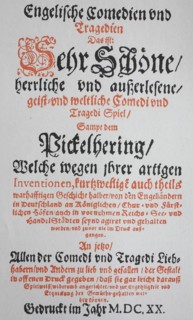 Engelische Comedien vnd
Tragedien
Das ist:
Sehr Schöne/
herrliche vnd außerlesene/
geist- vnd weltliche Comedi vnd
Tragedi Spiel/
Sampt dem
Pickelhering/
Welche wegen jhrer artigen
Inventionen, kurtzweilige auch theils
warhafftigen Geschicht halber, von den Engelländern
in Deutschland an Königlichen/ Chur- vnd Fürst-
lichen Höfen auch in vornehmen Reichs- See- vnd
HandelStädten seynd agiret vnd gehalten
worden, vnd zuvor nie im Druck auß-
gangen.
An jetzo/
Allen der Comedi vnd Tragedi Lieb-
habern/ vnd Andern zu lieb vnd gefallen/ der Gestalt
in offenen Druck gegeben/ daß sie gar leicht darauß
Spielweiß widerumb angerichtet/ vnd zur Ergetzligkeit vnd
Erquickung des Gemüths gehalten wer-
den können.
Gedruckt im Jahr M.DC.XX.